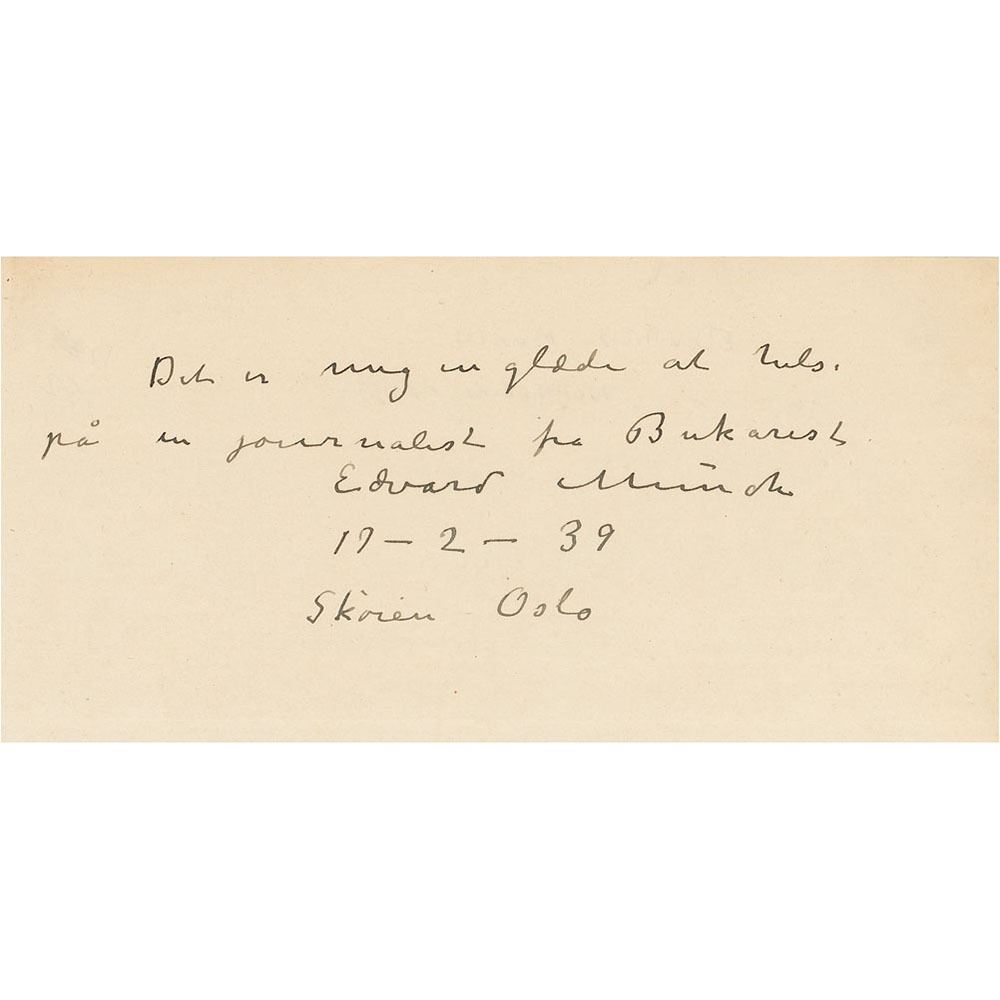 Det er mig en glæde at hils.
på en journalist fra Bukarest
Edvard Munch
17 – 2 – 39
Skøien Oslo